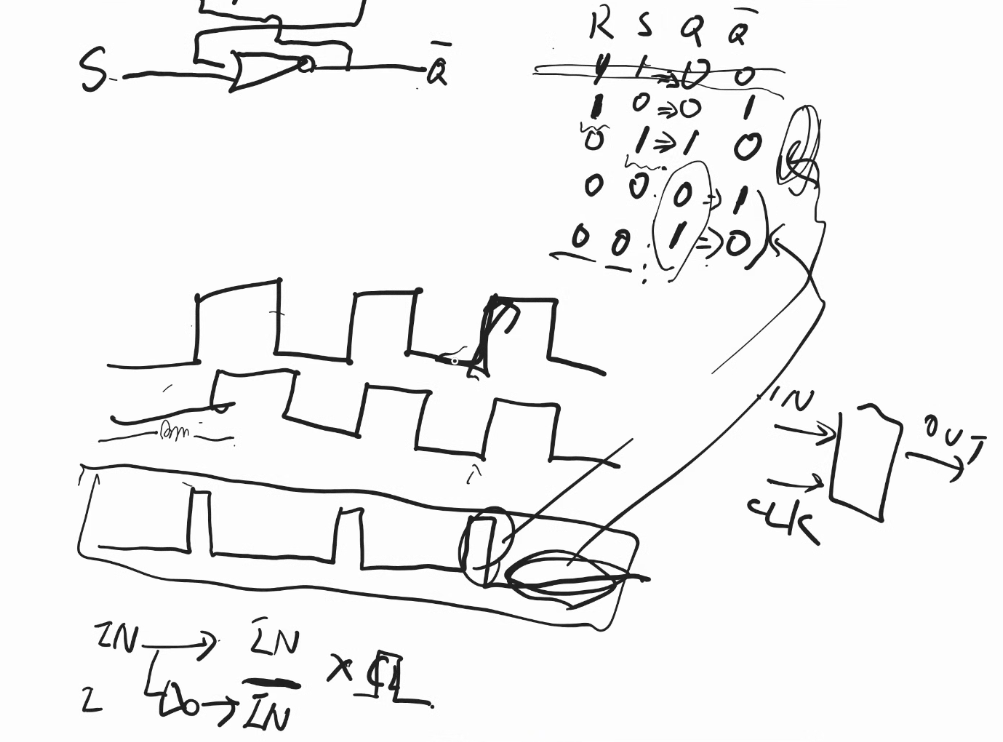 R S Q Q̅
S Q̅
1 0 ⇒ 0 1
0 1 ⇒ 1 0
0 0 0 ⇒ 1
0 0 : 1 ⇒ 0
IN
OUT
CLK
IN → IN
→ I̅N̅